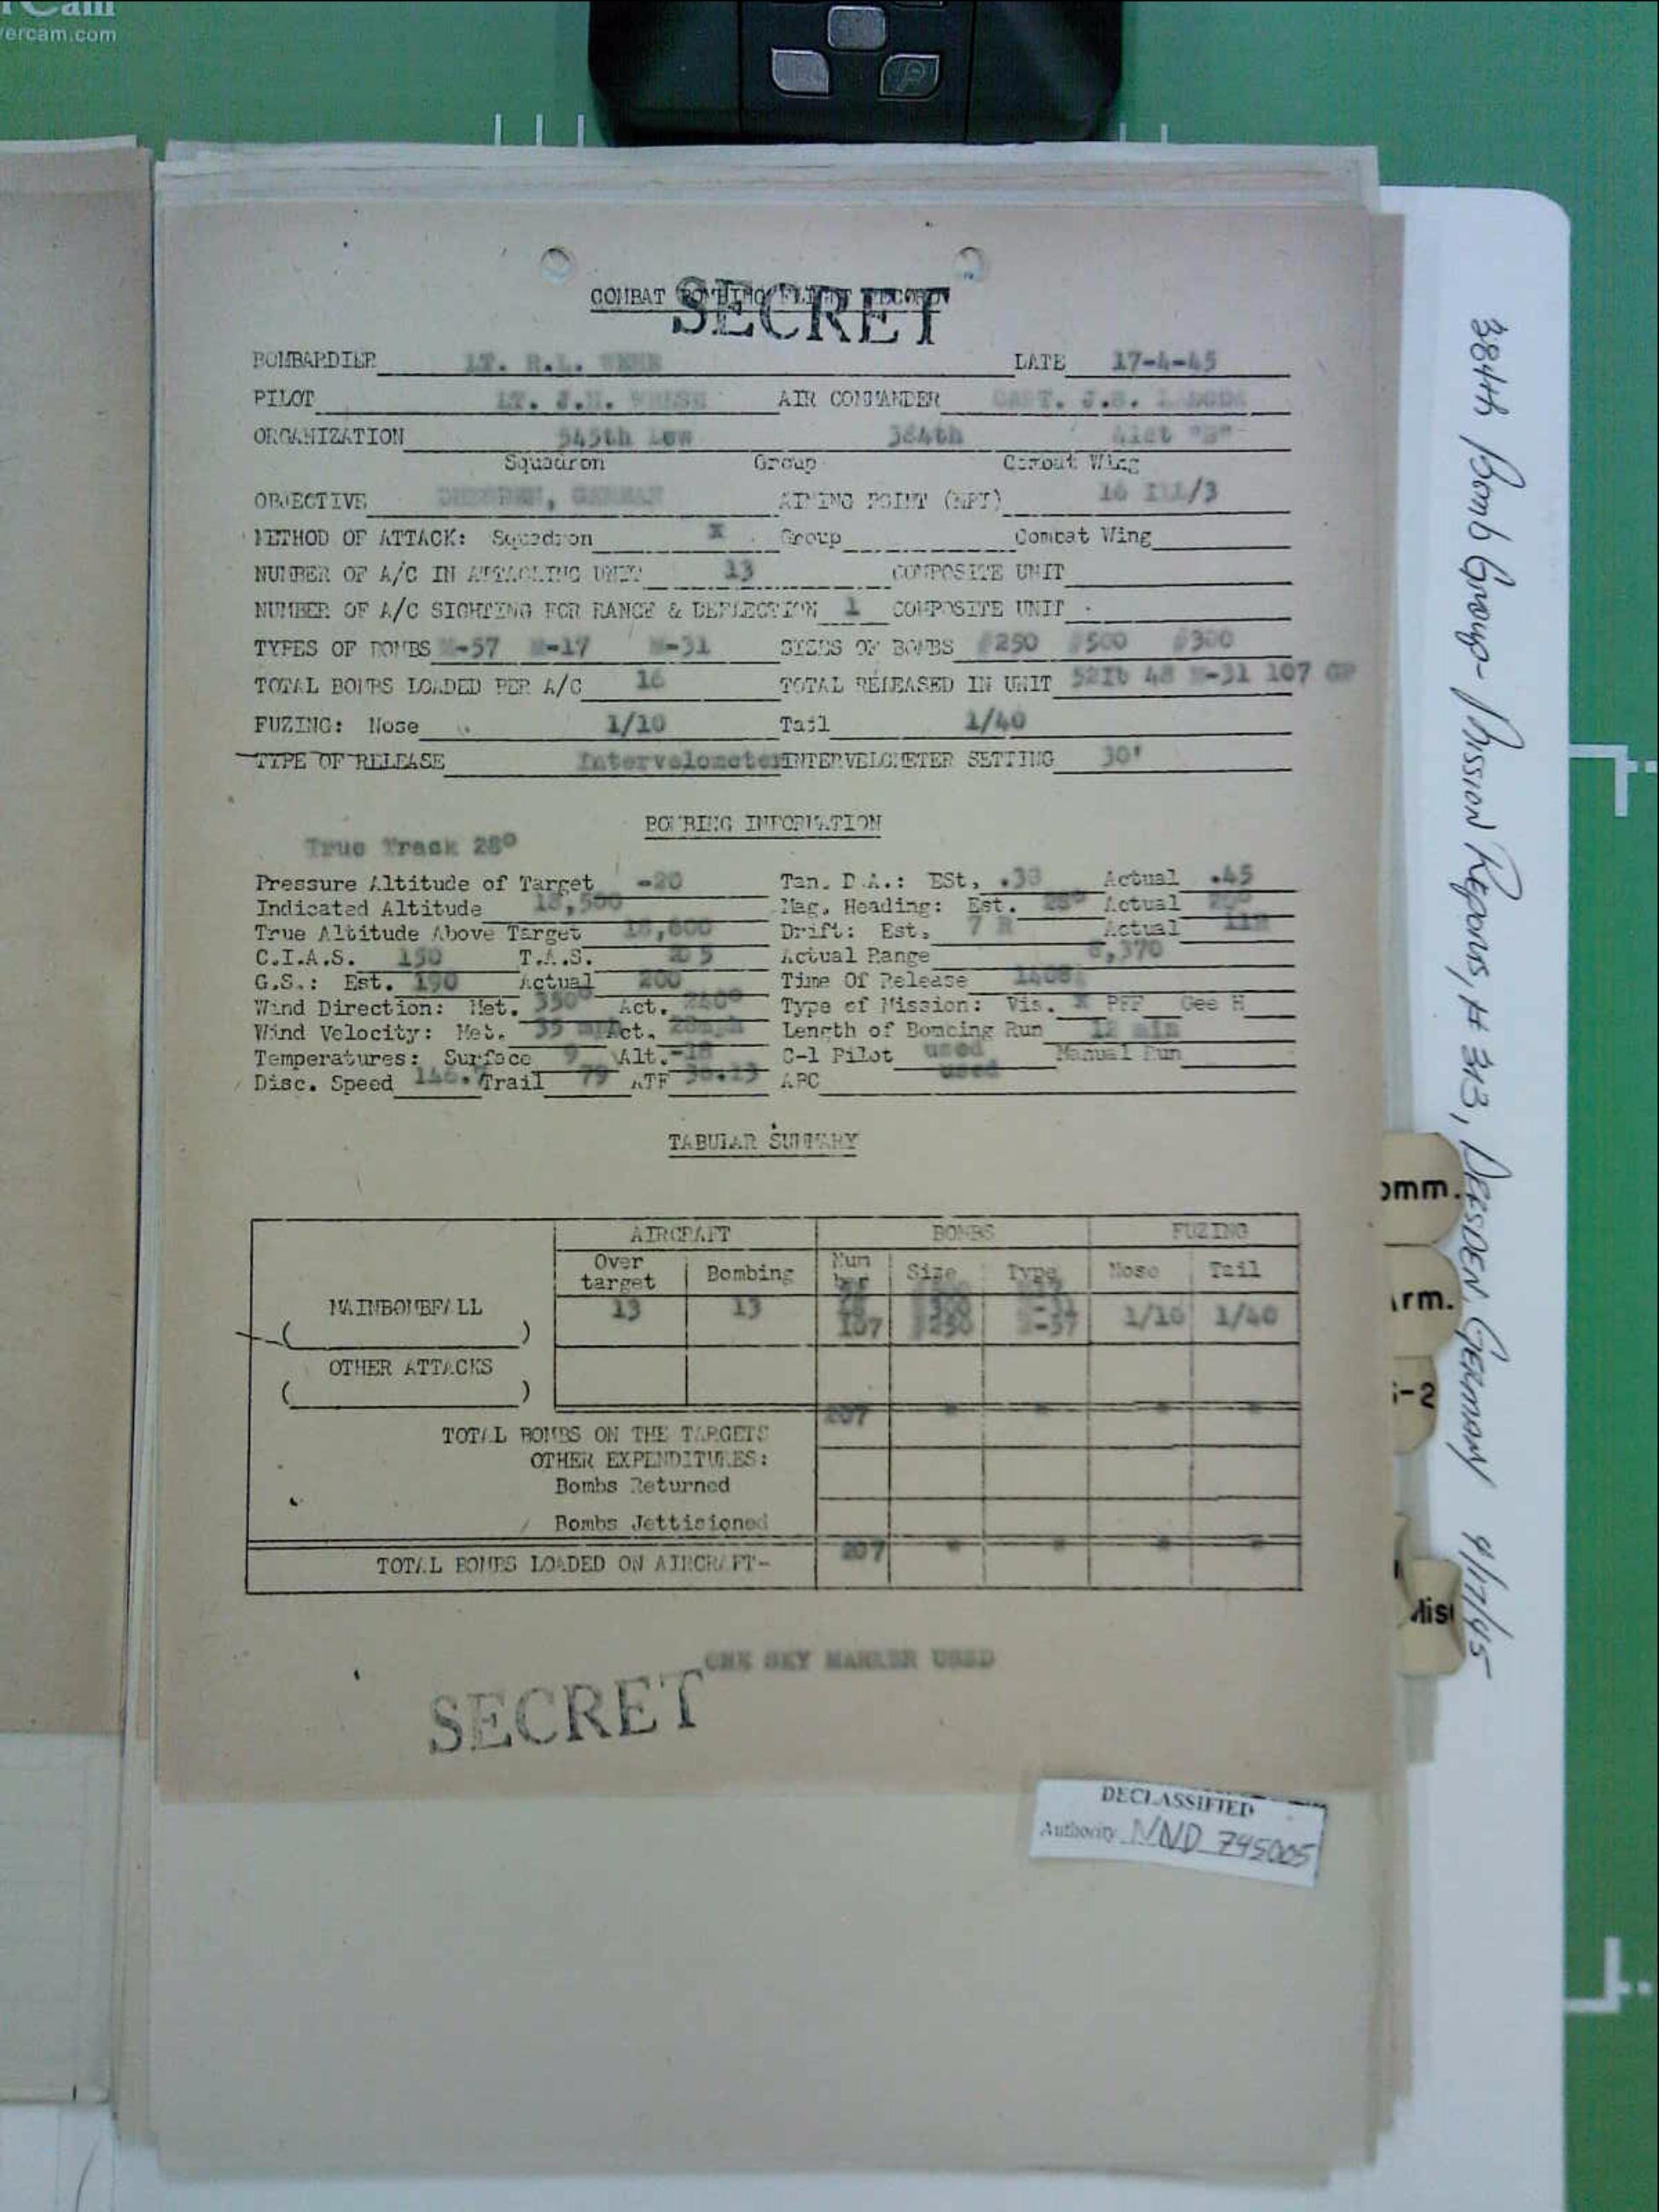 vercam.com
COMBAT BOMBING FLIGHT RECORD
SECRET
BOMBARDIER LT. R.L. DATE 17-4-45
PILOT LT. J.H. AIR COMMANDER CAPT. J.S.
ORGANIZATION 545th Low 384th 41st "B"
Squadron Group Combat Wing
OBJECTIVE DRESDEN, GERMAN AIMING POINT (MPI) 16 /3
METHOD OF ATTACK: Squadron X Group Combat Wing
NUMBER OF A/C IN ATTACKING UNIT 13 COMPOSITE UNIT
NUMBER OF A/C SIGHTING FOR RANGE & DEFLECTION 1 COMPOSITE UNIT
TYPES OF BOMBS M-57 M-17 M-31 SIZES OF BOMBS #250 #500 #300
TOTAL BOMBS LOADED PER A/C 16 TOTAL RELEASED IN UNIT 52Ib 48 M-31 107 GP
FUZING: Nose 1/10 Tail 1/40
TYPE OF RELEASE Intervelometer INTERVELOMETER SETTING 30'
BOMBING INFORMATION
True Track 28°
Pressure Altitude of Target -20 Tan. D.A.: Est, .38 Actual .45
Indicated Altitude 18,500 Mag. Heading: Est. Actual
True Altitude Above Target 18,600 Drift: Est, 7 R Actual 11R
C.I.A.S. 150 T.A.S. 205 Actual Range 8,370
G.S.: Est. 190 Actual 200 Time Of Release 1408
Wind Direction: Met. 330° Act. 240° Type of Mission: Vis. X PFF Gee H
Wind Velocity: Met. 35 mph Act. 28mph Length of Bombing Run 12 min
Temperatures: Surface 9 Alt. -18 C-1 Pilot used Manual Run
Disc. Speed 146. Trail 79 ATF 36.13 ABC used
TABULAR SUMMARY
AIRCRAFT BOMBS FUZING
Over target Bombing Num ber Size Type Nose Tail
MAINBOMBFALL 13 13 1/10 1/40
( ) 107 #250 M-57
OTHER ATTACKS
( )
TOTAL BOMBS ON THE TARGETS 207 " " " "
OTHER EXPENDITURES:
Bombs Returned
Bombs Jettisioned
TOTAL BOMBS LOADED ON AIRCRAFT- 207 " " " "
ONE SKY MARKER USED
SECRET
DECLASSIFIED
Authority NND 745005
384th Bomb Group - Mission Reports, # 313, DRESDEN, GERMANY 4/17/45
omm.
rm.
-2
Mis